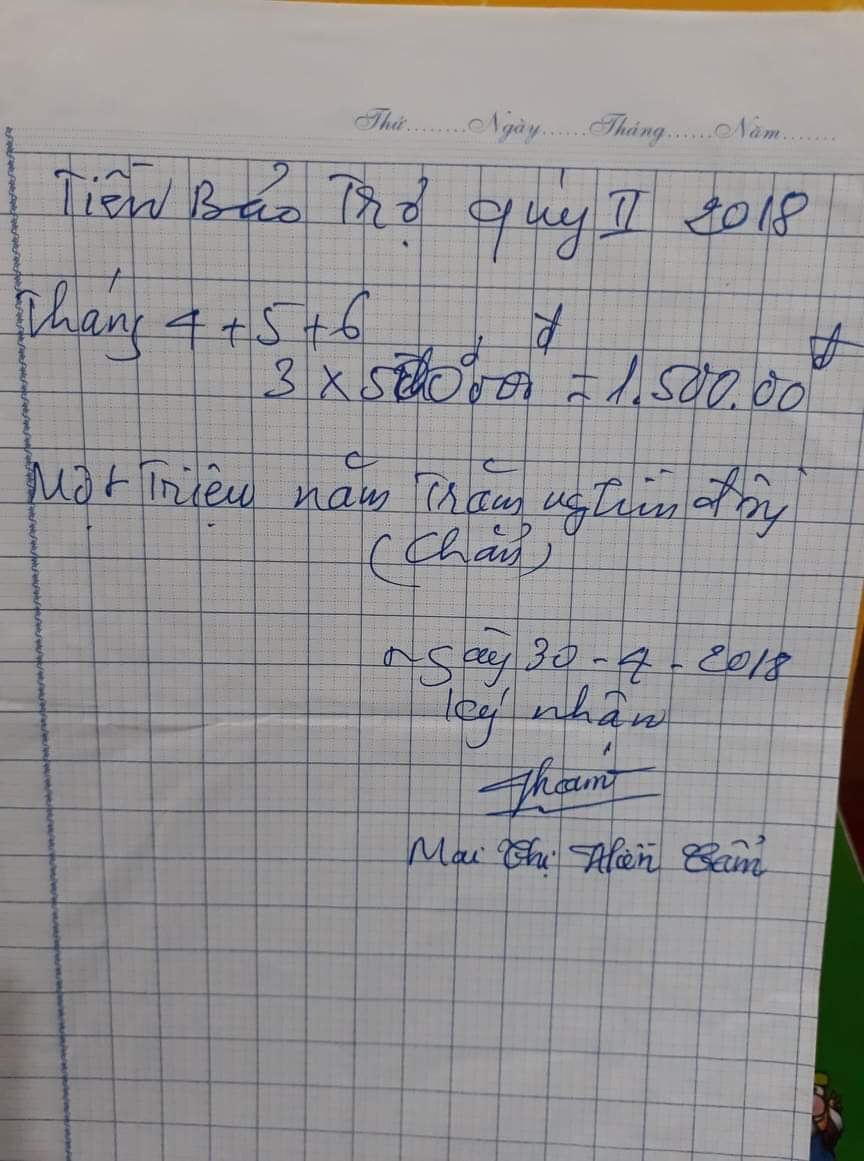 Thứ........Ngày......Tháng......Năm.......
Tiền Bảo Trợ quý II 2018
Tháng 4 + 5 + 6
đ
3 x 500.000 = 1.500.00đ
Một Triệu năm Trăm nghìn đồng
(Chẵn)
Ngày 30 - 4 - 2018
ký nhận
Mai Thị